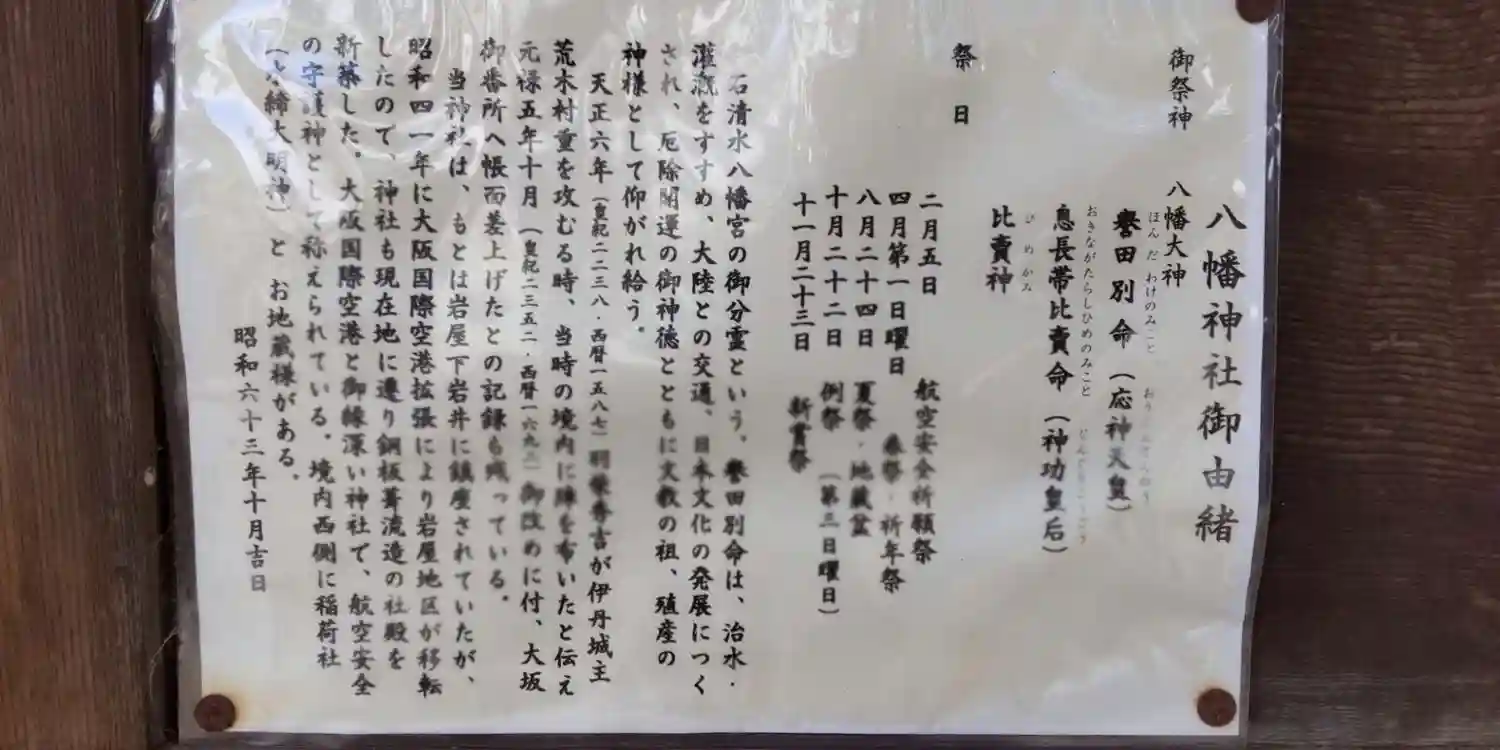 八幡神社御由緒
御祭神　八幡大神
ほんだわけのみこと
誉田別命（応神天皇）
おきながたらしひめのみこと　じんぐうこうごう
息長帯比賣命（神功皇后）
ひめかみ
比賣神
祭　日
二月五日　航空安全祈願祭
四月第一日曜日　春祭・祈年祭
八月二十四日　夏祭・地蔵盆
十月二十二日　例祭　（第三日曜日）
十一月二十三日　新嘗祭
石清水八幡宮の御分霊という。誉田別命は、治水・
灌漑をすすめ、大陸との交通、日本文化の発展につく
され、厄除開運の御神徳とともに文教の祖、殖産の
神様として仰がれ給う。
天正六年（皇紀二二三八・西暦一五八七）羽柴秀吉が伊丹城主
荒木村重を攻むる時、当時の境内に陣を布いたと伝え
元禄五年十月（皇紀二三五二・西暦一六九二）御改めに付、大坂
御番所へ帳面差上げたとの記録も残っている。
当神社は、もとは岩屋下岩井に鎮座されていたが、
昭和四一年に大阪国際空港拡張により岩屋地区が移転
したので、神社も現在地に遷り銅板葺流造の社殿を
新築した。大阪国際空港と御縁深い神社で、航空安全
の守護神として称えられている。境内西側に稲荷社
締大明神）と　お地蔵様がある。
昭和六十三年十月吉日